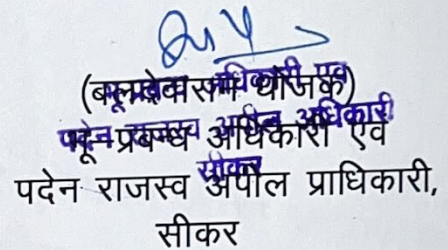 (बलदेवाराम धोजक)
भू-प्रबन्ध अधिकारी एवं
पदेन राजस्व अपील प्राधिकारी,
सीकर
भू-प्रबन्ध अधिकारी एव
पदेन राजस्व अपील अधिकारी
सीकर